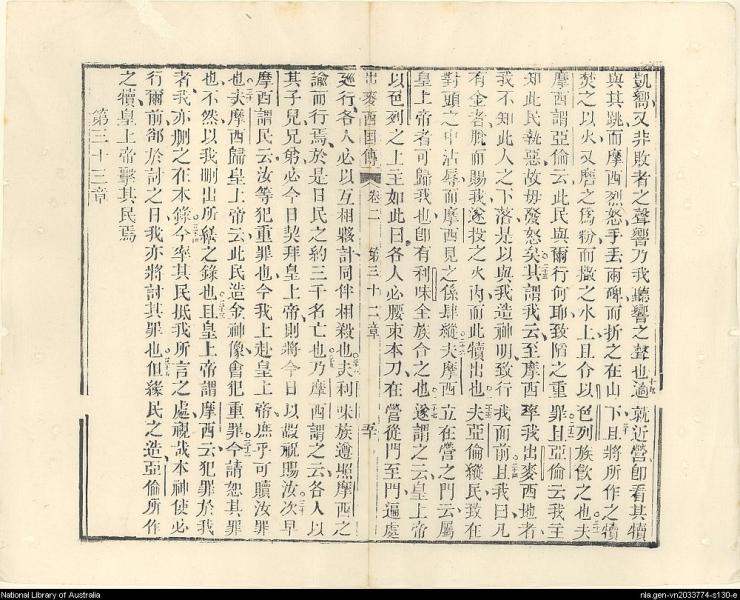 凱嚮又非敗者之聲響乃我聽響之聲也適就近營卽看其犢
與其跳而摩西烈怒手丟兩碑而折之在山下且將所作之犢
焚之以火又磨之爲粉而撒之水上且令以色列族飲之也夫
摩西謂亞倫云此民與爾行何耶致陷之重罪且亞倫云我主
知此民執惡故毋發怒矣其謂我云至摩西率我出麥西地者
我不知此人之下落是以與我造神明致行我面前且我曰凡
有金者脫而賜我遂投之火內而此犢出也夫亞倫縱民致在
對頭之中沾辱而摩西見之係肆縱夫摩西立在營之門云屬
皇上帝者可歸我也卽有利味全族合之也遂謂之云皇上帝
以色列之上主如此曰各人必腰束本刀在營從門至門遍處
出麥西国傳 卷二 第三十二章
廵行各人必以互相夥計同伴相殺也夫利味族遵照摩西之
諭而行焉於是日民之約三千名亡也乃摩西謂之云各人以
其子兄兄弟必今日契拜皇上帝則將今日以嘏祝賜汝次早
摩西謂民云汝等犯重罪也今我上赴皇上帝庶乎可贖汝罪
也夫摩西歸皇上帝云此民造金神像會犯重罪今請恕其罪
也不然以我刪出所繕之錄也且皇上帝謂摩西云犯罪於我
者我亦刪之在本錄今率其民抵我所言之處視哉本神使必
行爾前卻於討之日我亦將討其罪也但緣民之造亞倫所作
之犢皇上帝擊其民焉
第三十三章
National Library of Australia
nla.gen-vn2033774-s130-e